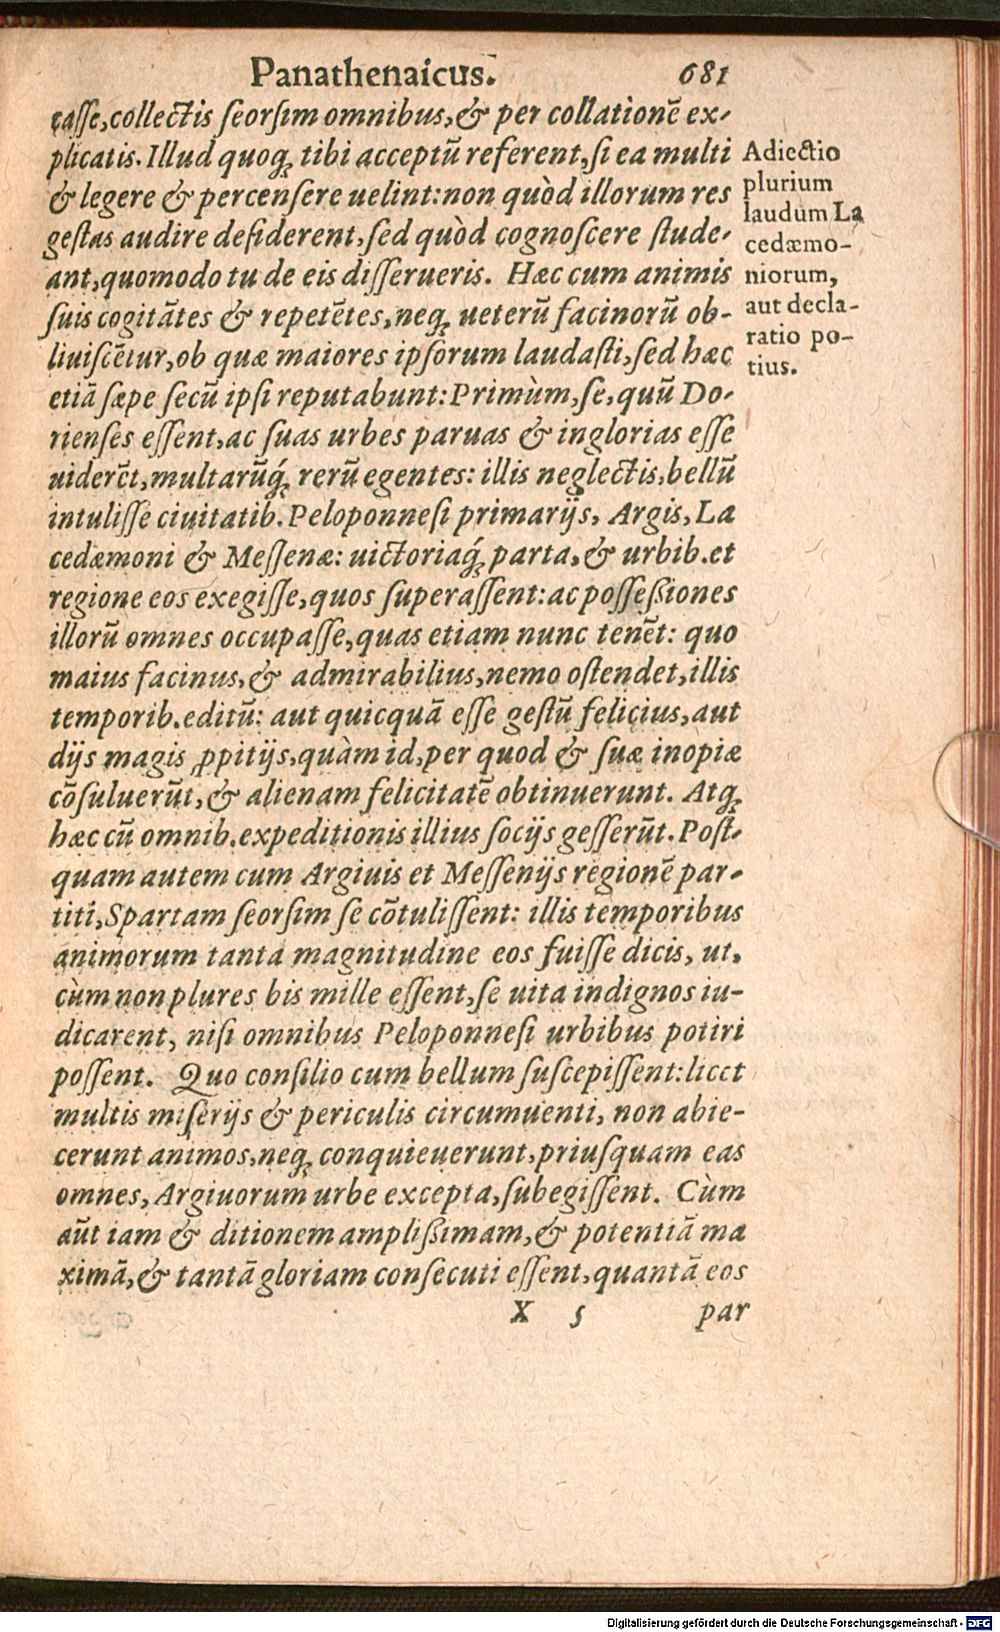 Panathenaicus. 681
casse, collectis seorsim omnibus, & per collationē ex-
plicatis. Illud quoq; tibi acceptū referent, si ea multi
& legere & percensere uelint: non quòd illorum res
gestas audire desiderent, sed quòd cognoscere stude-
ant, quomodo tu de eis disserueris. Hæc cum animis
suis cogitātes & repetētes, neq; ueterū facinorū ob-
liuiscētur, ob quæ maiores ipsorum laudasti, sed hæc
etiā sæpe secū ipsi reputabunt: Primùm, se, quū Do-
rienses essent, ac suas urbes paruas & inglorias esse
uiderēt, multarūq́; rerū egentes: illis neglectis, bellū
intulisse ciuitatib. Peloponnesi primarijs, Argis, La
cedæmoni & Messenæ: uictoriaq́; parta, & urbib. et
regione eos exegisse, quos superassent: ac posseßiones
illorū omnes occupasse, quas etiam nunc tenēt: quo
maius facinus, & admirabilius, nemo ostendet, illis
temporib. editū: aut quicquā esse gestū felicius, aut
dijs magis ꝓpitijs, quàm id, per quod & suæ inopiæ
cōsuluerūt, & alienam felicitatē obtinuerunt. Atq;
hæc cū omnib. expeditionis illius socijs gesserūt. Post-
quam autem cum Argiuis et Messenijs regionē par-
titi, Spartam seorsim se cōtulissent: illis temporibus
animorum tanta magnitudine eos fuisse dicis, ut,
cùm non plures bis mille essent, se uita indignos iu-
dicarent, nisi omnibus Peloponnesi urbibus potiri
possent. Quo consilio cum bellum suscepissent: licet
multis miserijs & periculis circumuenti, non abie-
cerunt animos, neq; conquieuerunt, priusquam eas
omnes, Argiuorum urbe excepta, subegissent. Cùm
aūt iam & ditionem amplißimam, & potentiā ma
ximā, & tantā gloriam consecuti essent, quantā eos
X 5 par
Adiectio
plurium
laudum La
cedæmo-
niorum,
aut decla-
ratio po-
tius.
Digitalisierung gefördert durch die Deutsche Forschungsgemeinschaft - DFG